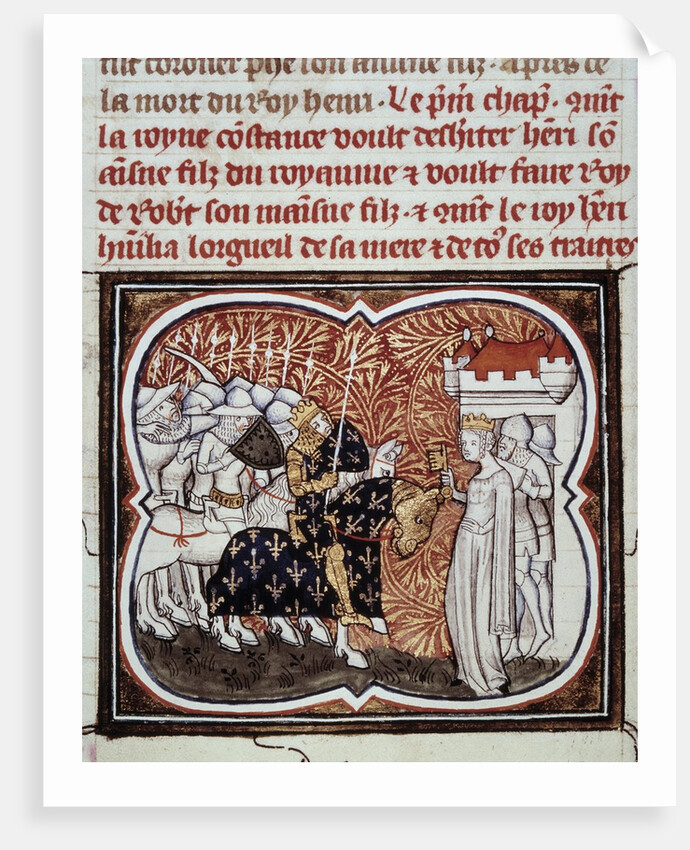 fut coroner phe son ainsne filz. apres ce
la mort du Roy henri. Le pm chap. Qmt
la royne costance voult desh'iter heri so
aisne filz du royaume & voult faire Roy
de Robt son maisne filz. & Qmt le roy hen
humilia lorgueil de sa mere & de to9 ses traitres